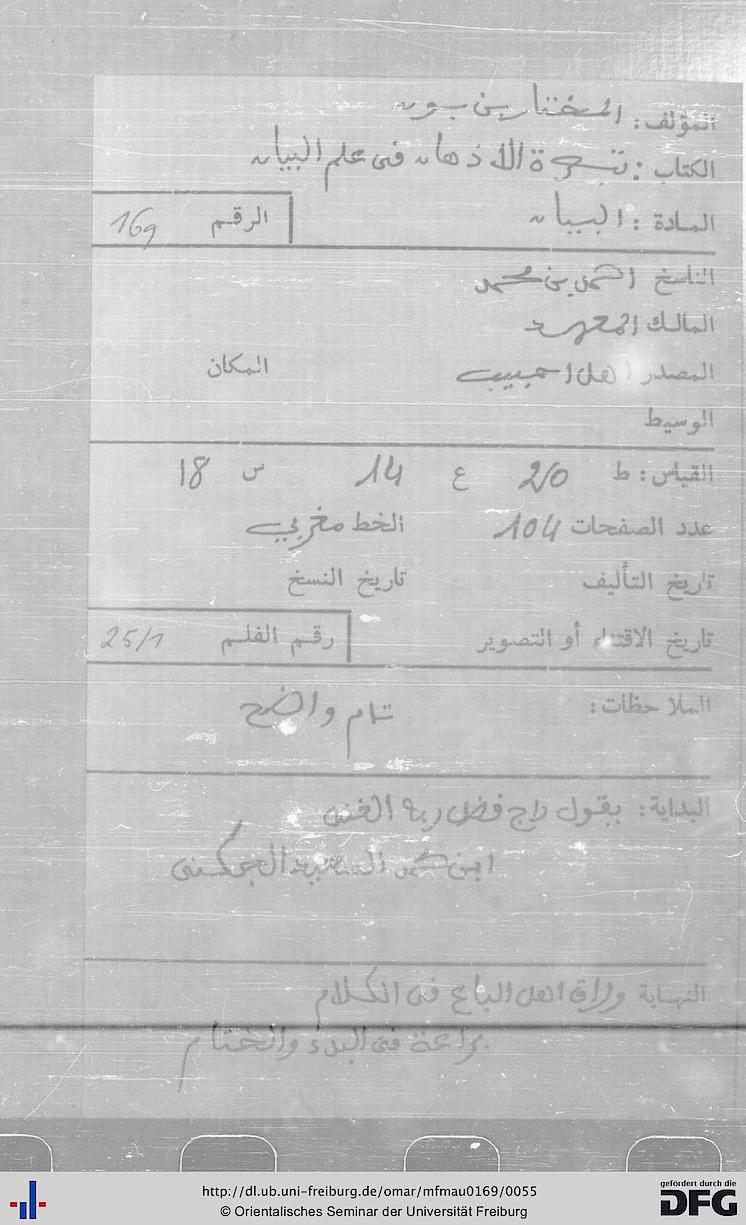 المؤلف: المختار بن بون
الكتاب: تبصرة الأذهان فى علم البيان
المادة: البيان
الرقم 169
الناسخ احمد بن محمد
المالك المعهد
المصدر اهل احبيب المكان
الوسيط
القياس: ط 20 ع 14 س 18
عدد الصفحات 104 الخط مغربي
تاريخ التأليف تاريخ النسخ
تاريخ الاقتناء أو التصوير رقم الفلم 25/1
الملاحظات: تام واضح
البداية: يقول راج فضل ربه الغنى
ابن محمد السعيد الجكنى
النهاية وراق اهل الباع فى الكلام
براعة فى البدء والختام
http://dl.ub.uni-freiburg.de/omar/mfmau0169/0055
© Orientalisches Seminar der Universität Freiburg
gefördert durch die
DFG